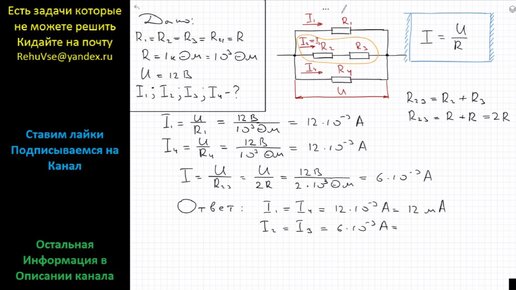 Есть задачи которые
не можете решить
Кидайте на почту
RehuVse@yandex.ru
Ставим лайки
Подписываемся на
Канал
Остальная
Информация в
Описании канала
Дано:
R₁=R₂=R₃=R₄=R
R=1кОм=10³Ом
U=12В
I₁; I₂; I₃; I₄-?
...
I₁ R₁
I₂=I₃
R₂ R₃
R₄
U
I = U/R
R₂₃ = R₂ + R₃
R₂₃ = R + R = 2R
I₁ = U/R₁ = 12В/10³Ом = 12·10⁻³ А
I₄ = U/R₄ = 12В/10³Ом = 12·10⁻³ А
I = U/R₂₃ = U/2R = 12В/2·10³Ом = 6·10⁻³ А
Ответ: I₁ = I₄ = 12·10⁻³ А = 12 мА
I₂ = I₃ = 6·10⁻³ А =